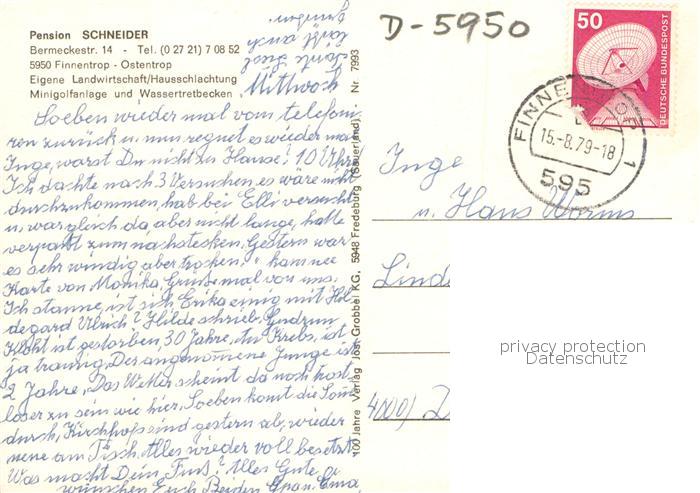 Pension SCHNEIDER
Bermeckestr. 14 - Tel. (0 27 21) 7 08 52
5950 Finnentrop - Ostentrop
Eigene Landwirtschaft/Hausschlachtung
Minigolfanlage und Wassertretbecken
Mittwoch
Soeben wieder mal vom telefonie-
ren zurück u. nun regnet es wieder mal
Inge, warst Du nicht zu Hause? 10 Uhr?
Ich dachte nach 3 Versuchen, es wäre nicht
durchzukommen, hab bei Elli versucht
u. war gleich da, aber nicht lange, hatte
verpaßt zum nachstecken. Gestern war
es sehr windig aber trocken, kam ne
Karte von Monika, Grüße mal von uns.
Ich staune, ist sich Erika einig mit Hil
degard Ulrich? Hilde schrieb, Gudrun
ist gestorben, 30 Jahre, Krebs, ist
ja traurig, Der angenommene Junge ist
2 Jahre, Das Wetter scheint da noch trost
loser zu sein wie hier, Soeben komt die Sonne
durch, Kirchhoffs sind gestern ab, wieder
neue am Tisch. Alles wieder voll besetzt.
Was macht Dein Fuß? Alles Gute
wünschen Euch Beiden
100 Jahre Verlag Jos. Grobbel KG, 5948 Fredeburg (Sauerland) Nr. 7993
D-5950
50
DEUTSCHE BUNDESPOST
FINNENTROP 1
15.-8.79-18
595
Inge
u. Hans Worms
Lind
4000/
privacy protection
Datenschutz